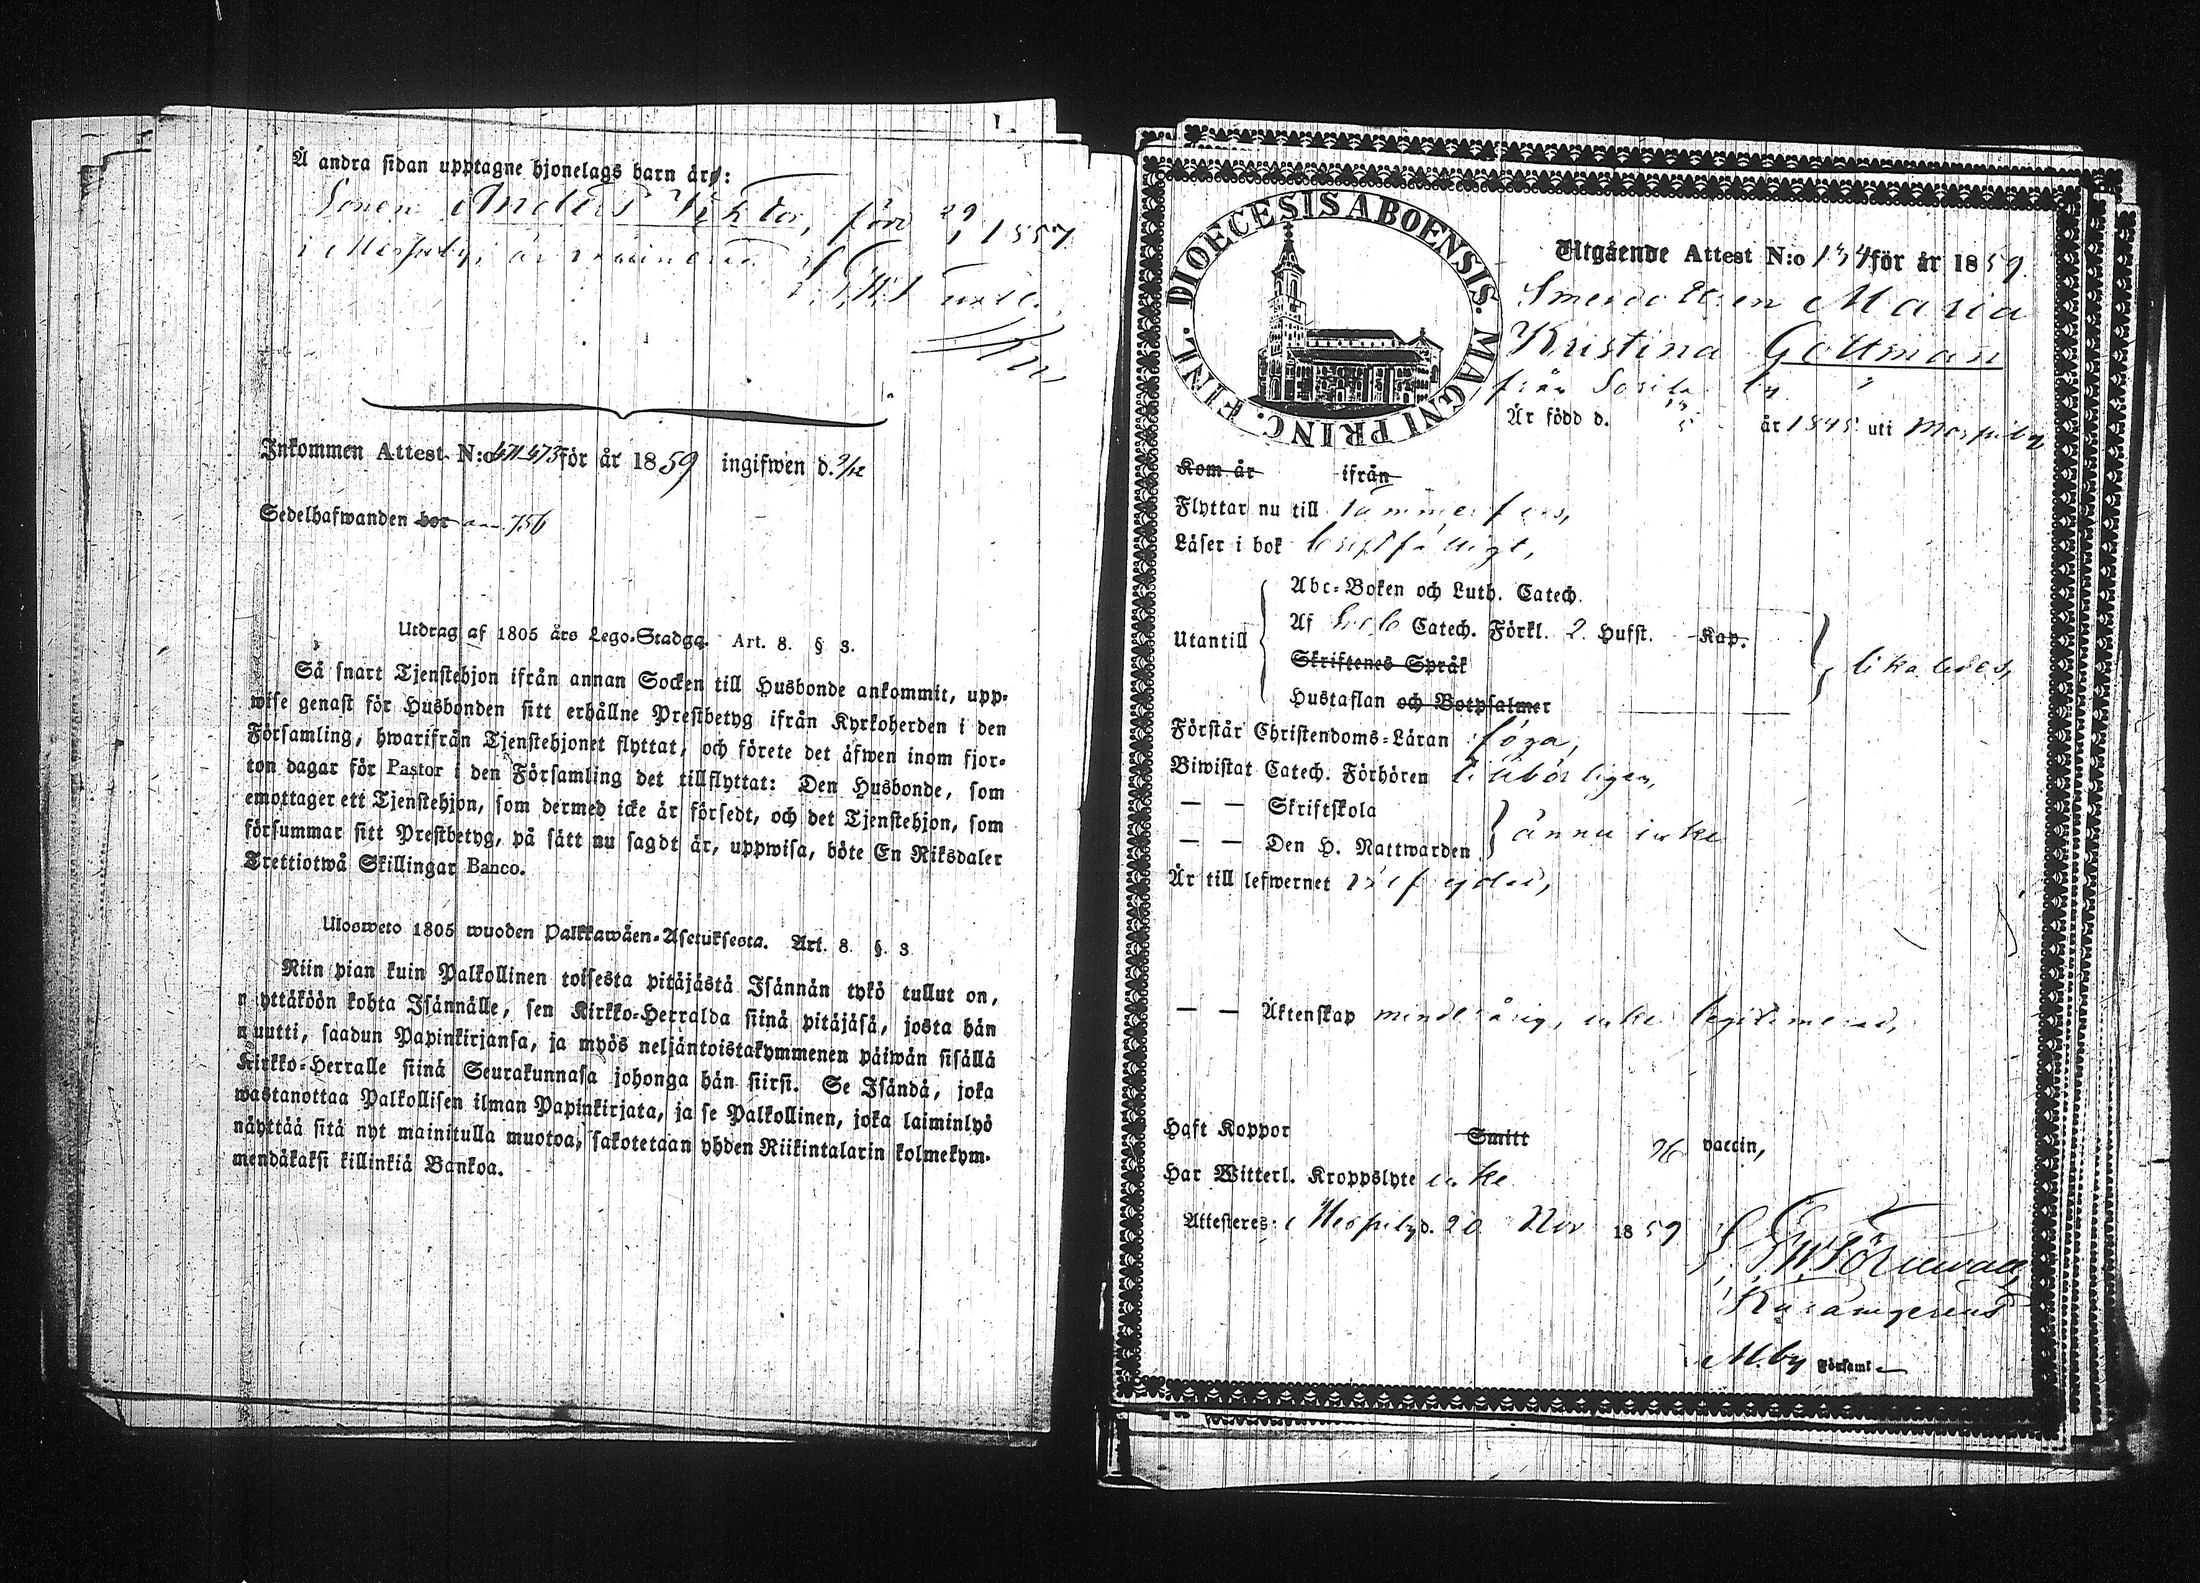 Å andra sidan upptagne hjonelags barn äro:
Sonen Anders Viktor, född 29/1 1857
i Messuby, är vaccinerad
Inkommen Attest N:o 471-473 för år 1859 ingifwen d. 3/12
Sedelhafwanden bor 756
Utdrag af 1805 års Lego-Stadga. Art. 8. § 3.
Så snart Tjenstehjon ifrån annan Socken till Husbonde ankommit, upp-
wise genast för Husbonden sitt erhållne Prestbetyg ifrån Kyrkoherden i den
Församling, hwarifrån Tjenstehjonet flyttat, och förete det äfwen inom fjor-
ton dagar för Pastor i den Församling det tillflyttat: Den Husbonde, som
emottager ett Tjenstehjon, som dermed icke är försedt, och det Tjenstehjon, som
försummar sitt Prestbetyg, på sätt nu sagdt är, uppwisa, böte En Riksdaler
Trettiotwå Skillingar Banco.
Ulosweto 1805 wuoden Palkkawäen-Asetuksesta. Art. 8. §. 3
Niin pian kuin Palkollinen toisesta pitäjästä Isännän tykö tullut on,
n yttäköön kohta Isännälle, sen Kirkko-Herralda siinä pitäjäsä, josta hän
muutti, saadun Papinkirjansa, ja myös neljäntoistakymmenen päiwän sisällä
Kirkko-Herralle siinä Seurakunnasa johonga hän siirsi. Se Isändä, joka
wastanottaa Palkollisen ilman Papinkirjata, ja se Palkollinen, joka laiminlyö
näyttää sitä nyt mainitulla muotoa, sakotetaan yhden Riikintalarin kolmekym-
mendäkaksi killinkiä Bankoa.
DIOECESIS ABOENSIS. MAGNI PRINC. FINL.
Utgående Attest N:o 134 för år 1859.
Smesdottren Maria
Kristina Gottman
från Sorila by
Är född d. 13/5 år 1845 uti Messuby
Kom år ifrån
Flyttar nu till Tammerfors,
Läser i bok bristfälligt,
Abc-Boken och Luth. Catech.
Utantill
Af Sveb. Catech. Förkl. 2. Hufst. Kap.
Skriftenes Språk
likaledes,
Hustaflan och Botpsalmer
Förstår Christendoms-Läran föga,
Biwistat Catech. Förhören tillbörligen,
— — Skriftskola
— — Den H. Nattwarden
ännu icke
Är till lefwernet välfrejdad,
— — Äktenskap minderårig, icke legitimerad,
Haft Koppor Smitt vaccin,
Har Witterl. Kroppslyte icke
Attesteras i Messuby d. 20 Nov 1859
M.by Församl